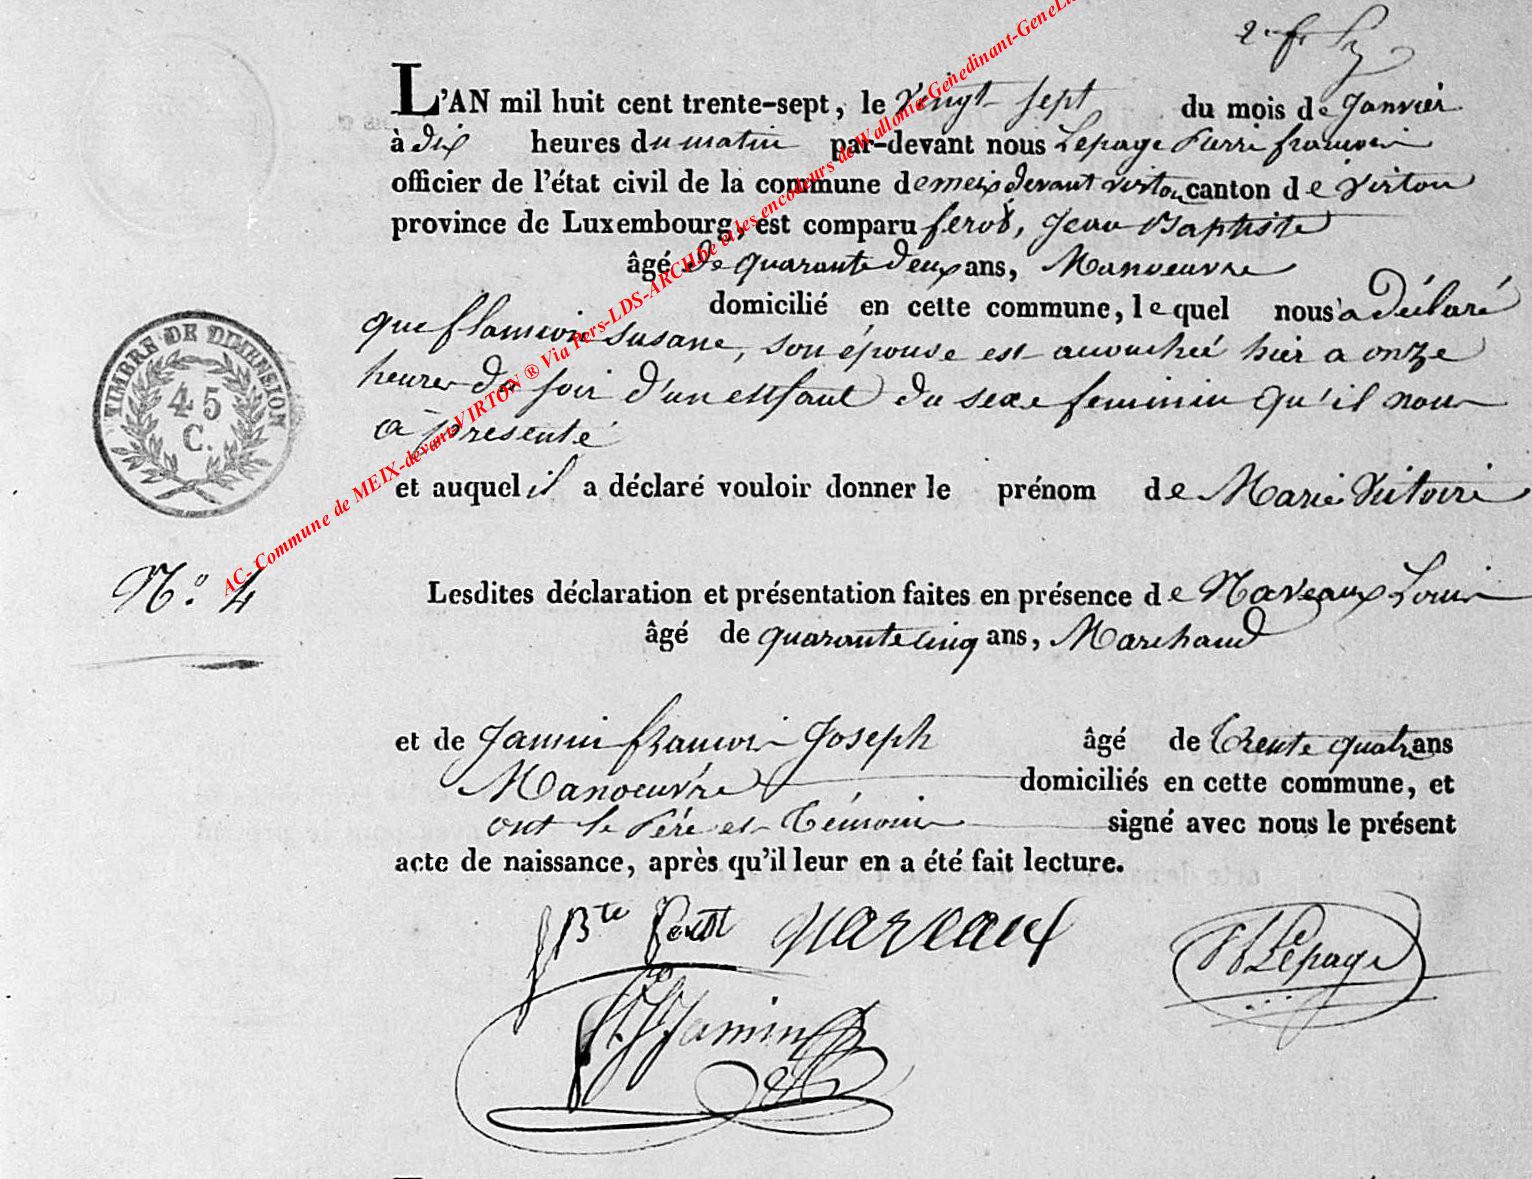 2e f.
L'AN mil huit cent trente-sept, le Vingt-Sept du mois de Janvier
à dix heures du matin par-devant nous Lepage Pierre françois
officier de l'état civil de la commune de meix devant virton canton de Virton
province de Luxembourg, est comparu ferot, Jean Baptiste
âgé de quarante deux ans, Manoeuvre
domicilié en cette commune, lequel nous a déclaré
que susane, son épouse est accouchée hier a onze
heures du soir d'un enfant du sexe feminin qu'il nous
a présenté
et auquel il a déclaré vouloir donner le prénom de Marie Victoire
TIMBRE DE DIMENSION
45
C.
No. 4
Lesdites déclaration et présentation faites en présence de Naveaux Louis
âgé de quarante cinq ans, Marchand
et de Jamin françois Joseph âgé de trente quatre ans
Manoeuvre domiciliés en cette commune, et
ont le Pére et Témoins signé avec nous le présent
acte de naissance, après qu'il leur en a été fait lecture.
JBte naveaux
Lepage
Jamin
AC- Commune de MEIX-devant-VIRTON ® Via Pers-LDS-ARCH.be et les encodeurs de Wallonie-Genedinant-GeneLi